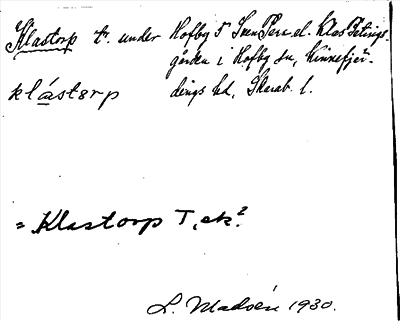 Klastorp t. under Hofby 5 SvenPers el. KlasPetings-
gården i Hofby sn, Kinnefjer-
klástorp dings hd, Skarab. l.
= Klastorp T, ek?
L. Madsén 1930.